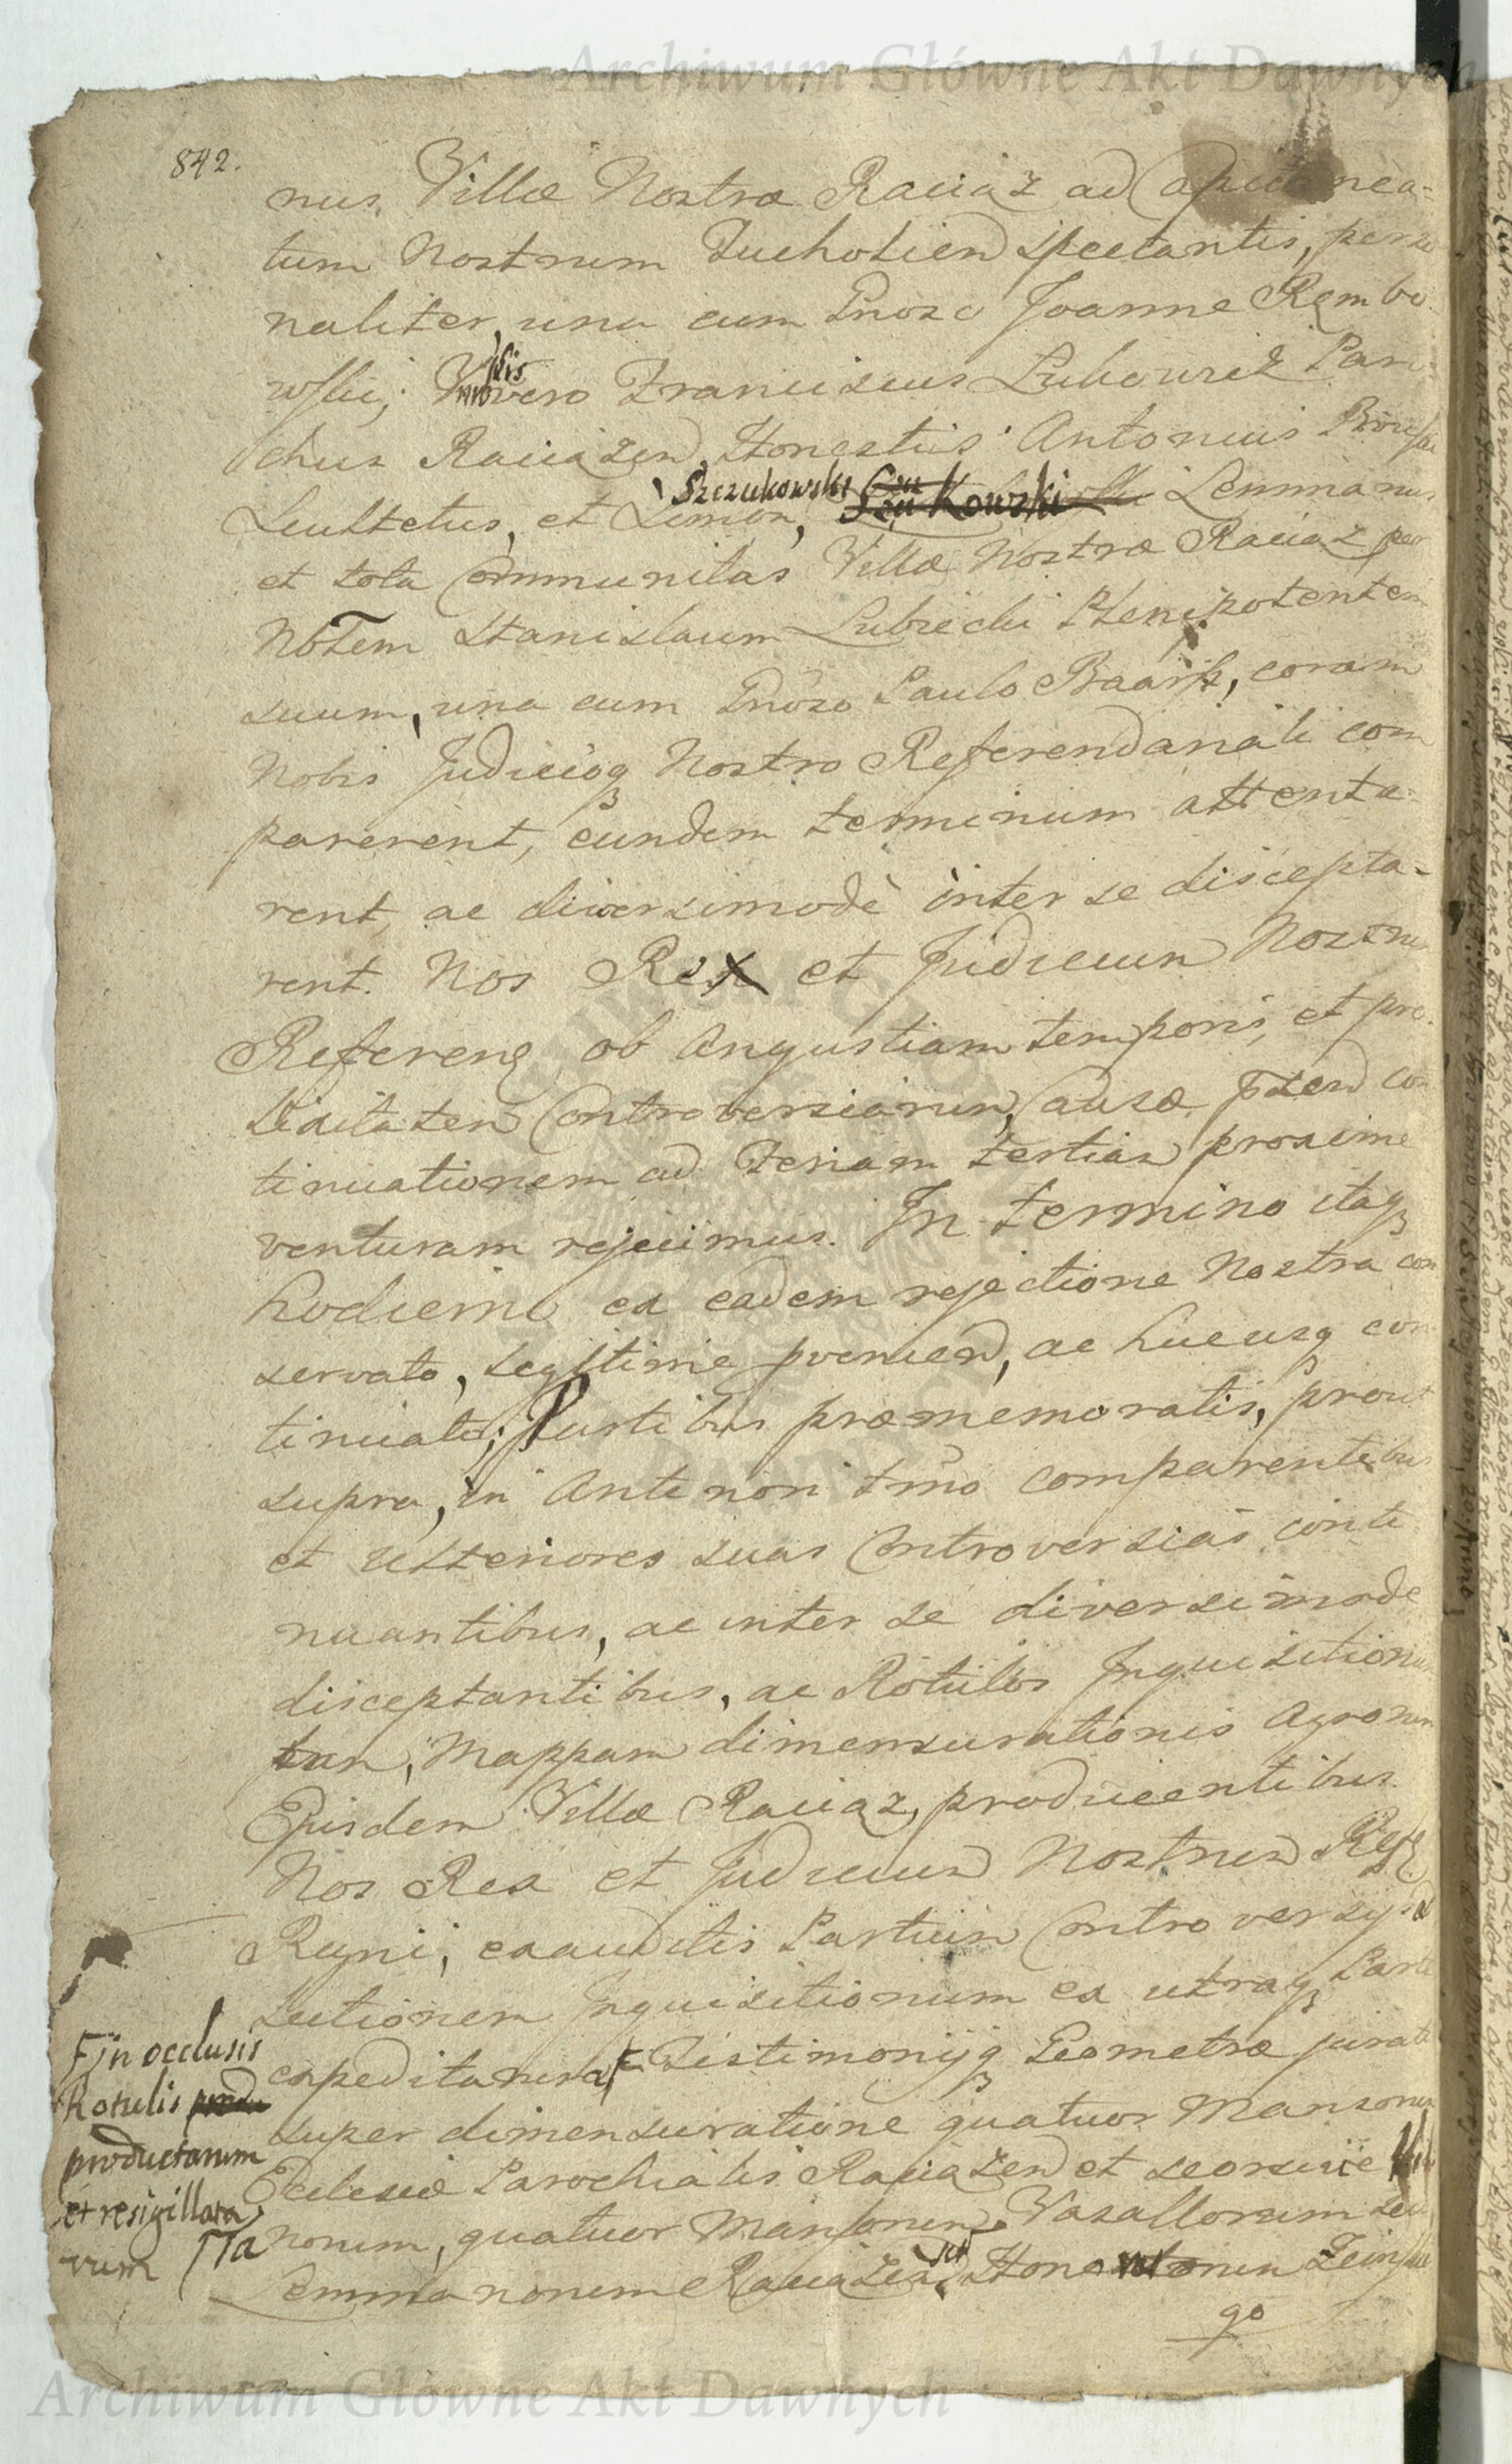 842.
nus, Villæ Nostræ Raciąz ad Capitanea-
tum Nostrum Tucholien spectantis, perso
naliter, una cum Gnoso Joanne Rembo
wski; Vnblis vero Franciscus Lubowicz Paro
chus Raciązen, Honestus Antonius
Scultetus, et Simon, Szczukowski Lemmanus
et tota Communitas Villæ Nostræ Raciąz per
Nobilem Stanislaum Lubiecki Plenipotentem
suum, una cum Gnoso Paulo Baarth, coram
Nobis Judicioq Nostro Referendariali com
parerent, eundem terminum attenta-
rent, ac diversimodè inter se discepta-
rent. Nos Rex et Judicium Nostrum
Referen, ob Angustiam temporis, et pro-
lixitatem Controversiarum, Causæ pnten con
tinuationem ad Feriam tertiam proxime
venturam rejecimus. In termino itaq
hodierno ex eadem rejectione Nostra con
servato, legitime provenien, ac hucusq con
tinuato; Partibus præmemoratis, prout
supra, in Anteriori tmno comparentibus
et ulteriores suas Controversias conti
nuantibus, ac inter se diversimode
disceptantibus, ac Rotulos Inquisitionum
tum, Mappam dimensurationis Agrorum
Ejusdem Villæ Raciąz, producentibus.
Nos Rex et Judicium Nostrum Ref
Regni, exauditis Partium Controversijs, ex
lectionem Inquisitionum ex utraq Parte
expeditarum F Testimonijq Geometræ jurati
super dimensuratione quatuor Mansorum
Ecclesiæ Parochialis Raciązen et seorsive
norum, quatuor Mansorum Vasallorum seu
Lemmanorum Raciązen, sed Hono
go
F in occlusis
Rotulis
productarum
et resigillata
rum